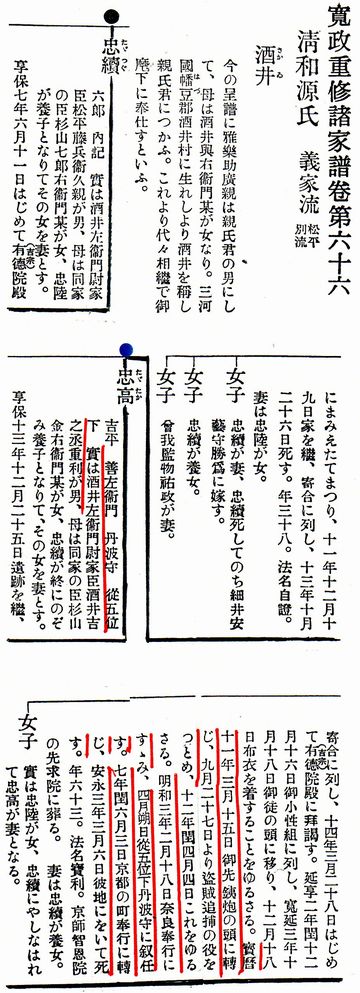 寬政重修諸家譜卷第六十六
清和源氏 義家流 松平別流
酒井 さかゐ
今の呈譜に雅樂助廣親は親氏君の男にし
て、母は酒井與右衞門某が女なり。三河
國幡豆郡酒井村に生れしより酒井を稱し
親氏君につかふ。これより代々相繼で御
麾下に奉仕すといふ。
忠續 たゞつぐ
六郎 內記 實は酒井左衞門尉家
臣松平藤兵衞久親が男、母は同家
の臣杉山七郎右衞門某が女、忠陸
が養子となりてその女を妻とす。
享保七年六月十一日はじめて有德院殿(吉宗)
にまみえたてまつり、十一年十二月十
九日家を繼、寄合に列し、十三年十月
二十六日死す。年三十八。法名自證。
妻は忠陸が女。
女子 忠續が妻、忠續死してのち細井安
藝守勝爲に嫁す。
女子 忠續が養女。
女子 曾我監物祐政が妻。
忠高 たゞたか
吉平 善左衞門 丹波守 從五位
下 實は酒井左衞門尉家臣酒井吉
之丞重利が男、母は同家の臣杉山
金右衞門某が女、忠續が終にのぞ
み養子となりて、その女を妻とす。
享保十三年十二月二十五日遺跡を繼、
寄合に列し、十四年三月二十八日はじめ
て有德院殿(吉宗)に拜謁す。延享二年閏十二
月十六日御小性組に列し、寬延三年十
月十八日御徒の頭に移り、十二月十八
日布衣を着することをゆるさる。寶曆
十一年三月十五日御先鐵炮の頭に轉
じ、九月二十七より盜賊追捕の役を
つとめ、十二年閏四月四日これをゆる
さる。明和三年二月十八日奈良奉行に
すゝみ、四月朔日從五位下丹波守に叙任
す。七年閏六月三日京都の町奉行に轉
じ、安永三年三月六日彼地にをいて死
す。年六十三。法名寶利。京師智恩院
の先求院に葬る。 妻は忠續が養女。
女子 實は忠陸が女、忠續にやしなはれ
て忠高が妻となる。